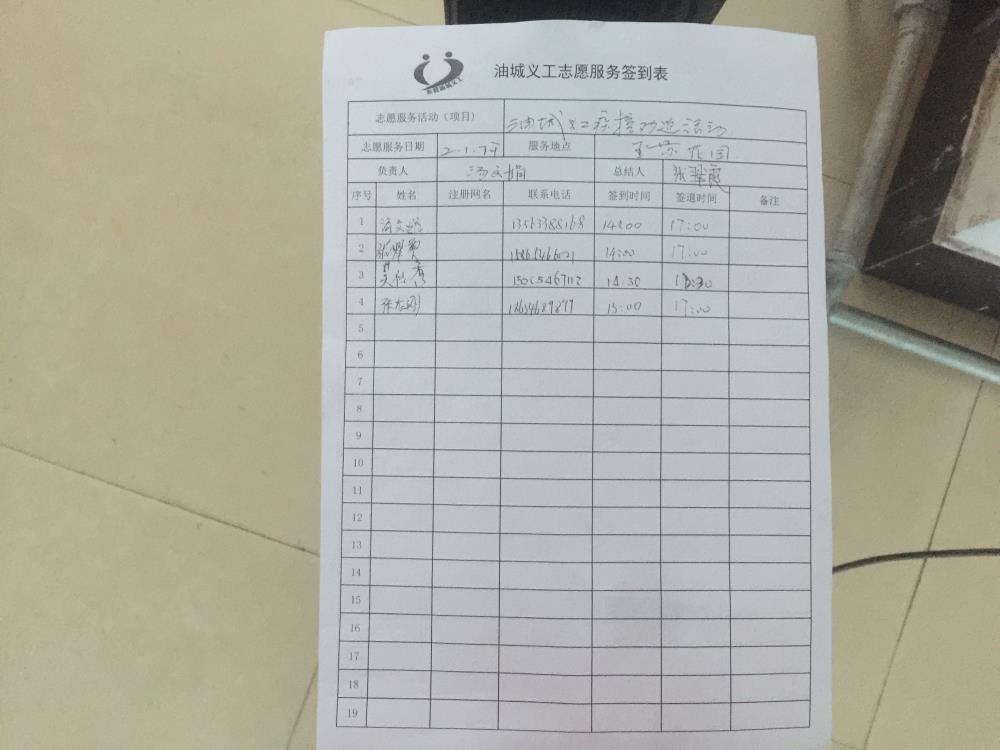 东营油城义工
油城义工志愿服务签到表
志愿服务活动（项目） 油城义工疫控劝返活动
志愿服务日期 服务地点 花园
负责人 汤文娟 总结人 张翠霞
序号 姓名 注册网名 联系电话 签到时间 签退时间 备注
1 汤文娟 13563388168 14:00 17:00
2 14:00 17:00
3 14:30
4 15:00 17:00
5
6
7
8
9
10
11
12
13
14
15
16
17
18
19